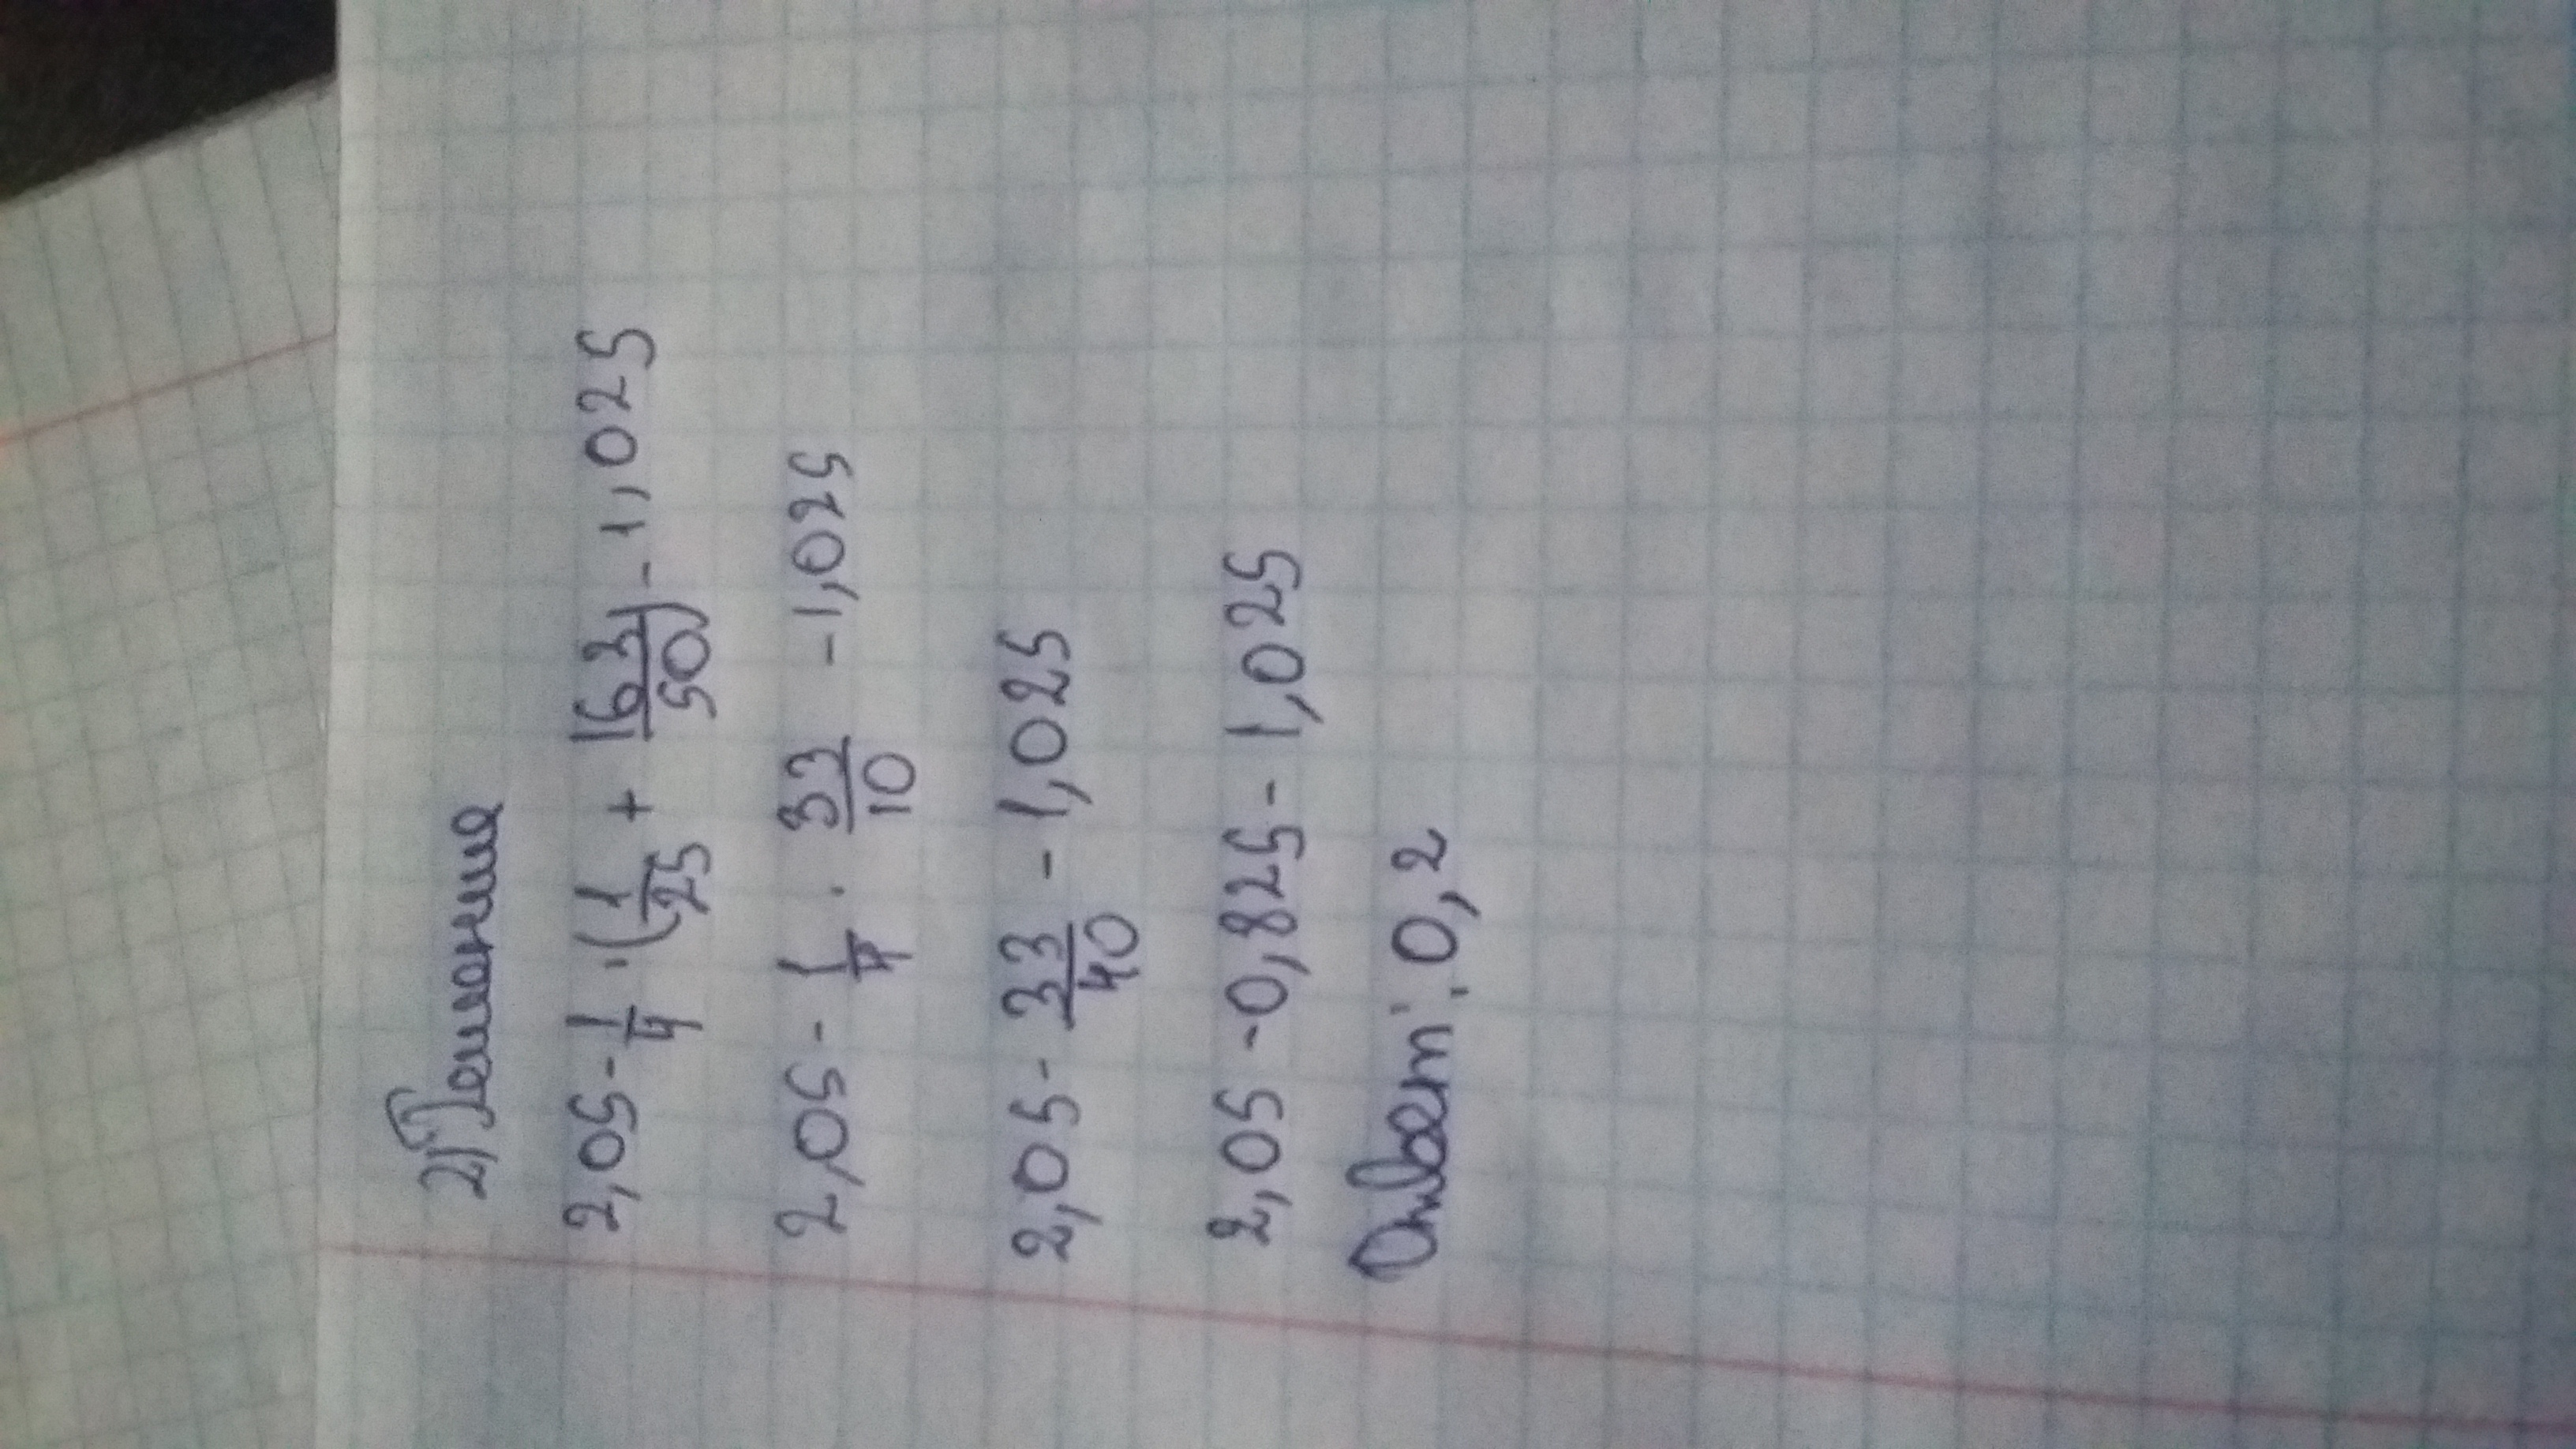 2) Решение
2,05 - 1/4 · (1/25 + 163/50) - 1,025
2,05 - 1/4 · 33/10 - 1,025
2,05 - 33/40 - 1,025
2,05 - 0,825 - 1,025
Ответ: 0,2